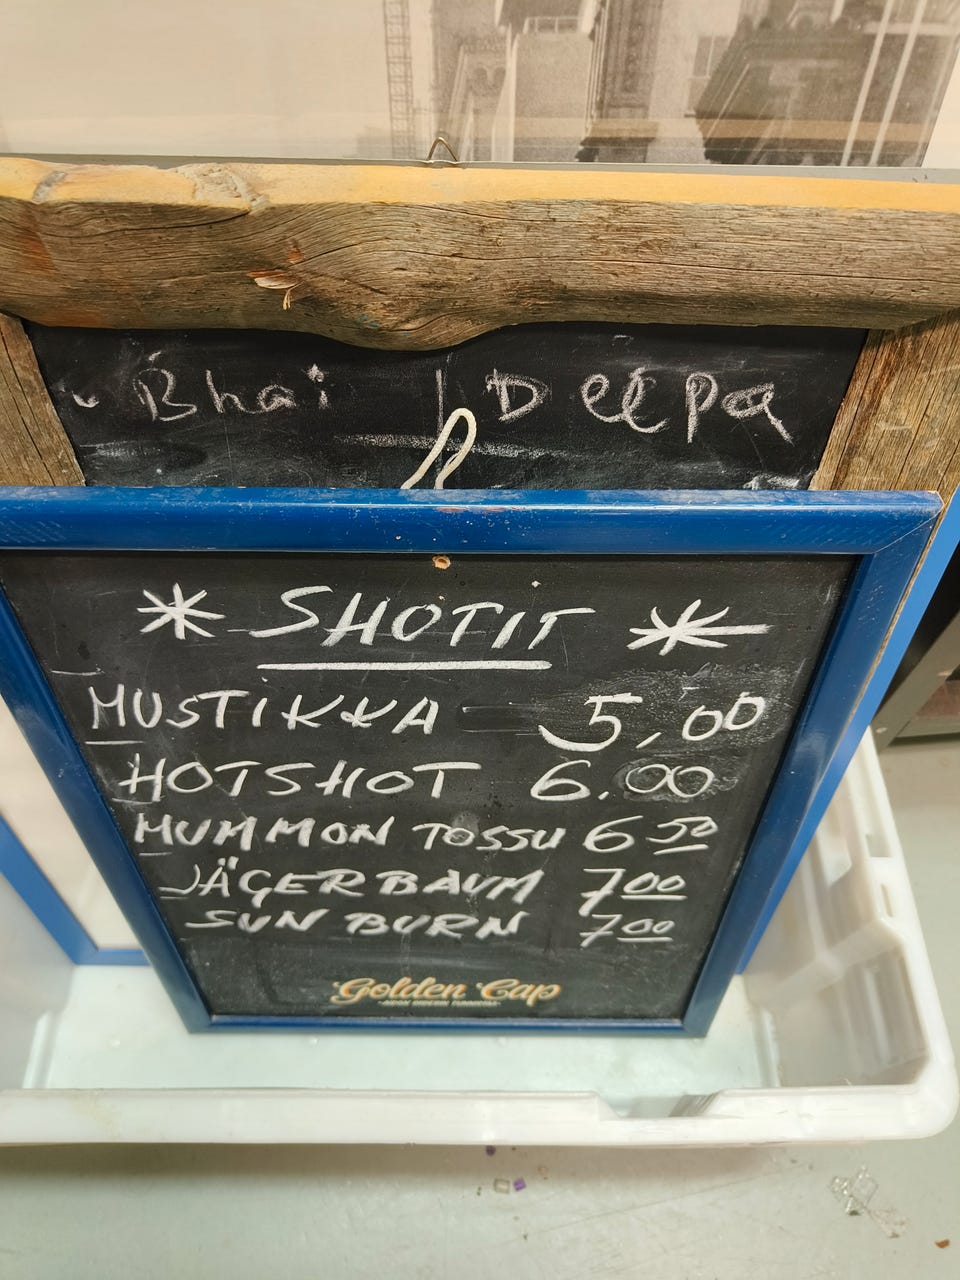 Bhai Deepa
* SHOTIT *
MUSTIKKA - 5,00
HOTSHOT 6.00
MUMMON TOSSU 6 50
JÄGERBAUM 7 00
SUN BURN 7 00
Golden Cap